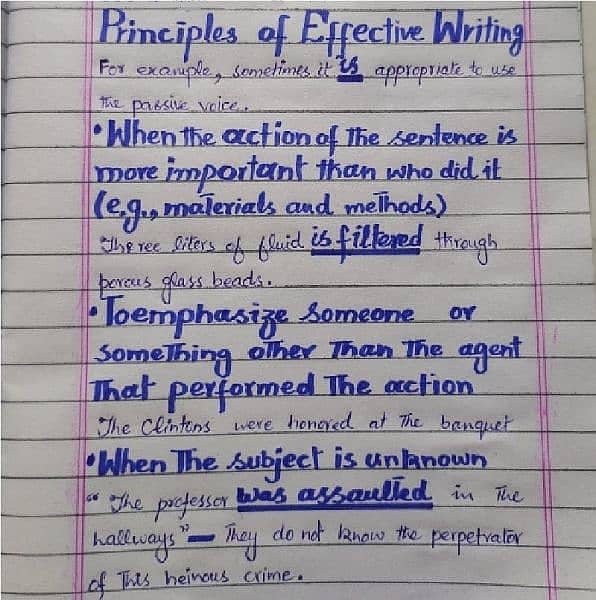 Principles of Effective Writing
For example, sometimes it is appropriate to use
the passive voice.
• When the action of the sentence is
more important than who did it
(e.g., materials and methods)
Theree liters of fluid is filtered through
porous glass beads.
• To emphasize someone or
something other Than The agent
That performed The action
The Clintons were honored at The banquet
• When The subject is unknown
" The professor was assaulted in The
hallways" — They do not know the perpetrator
of This heinous crime.